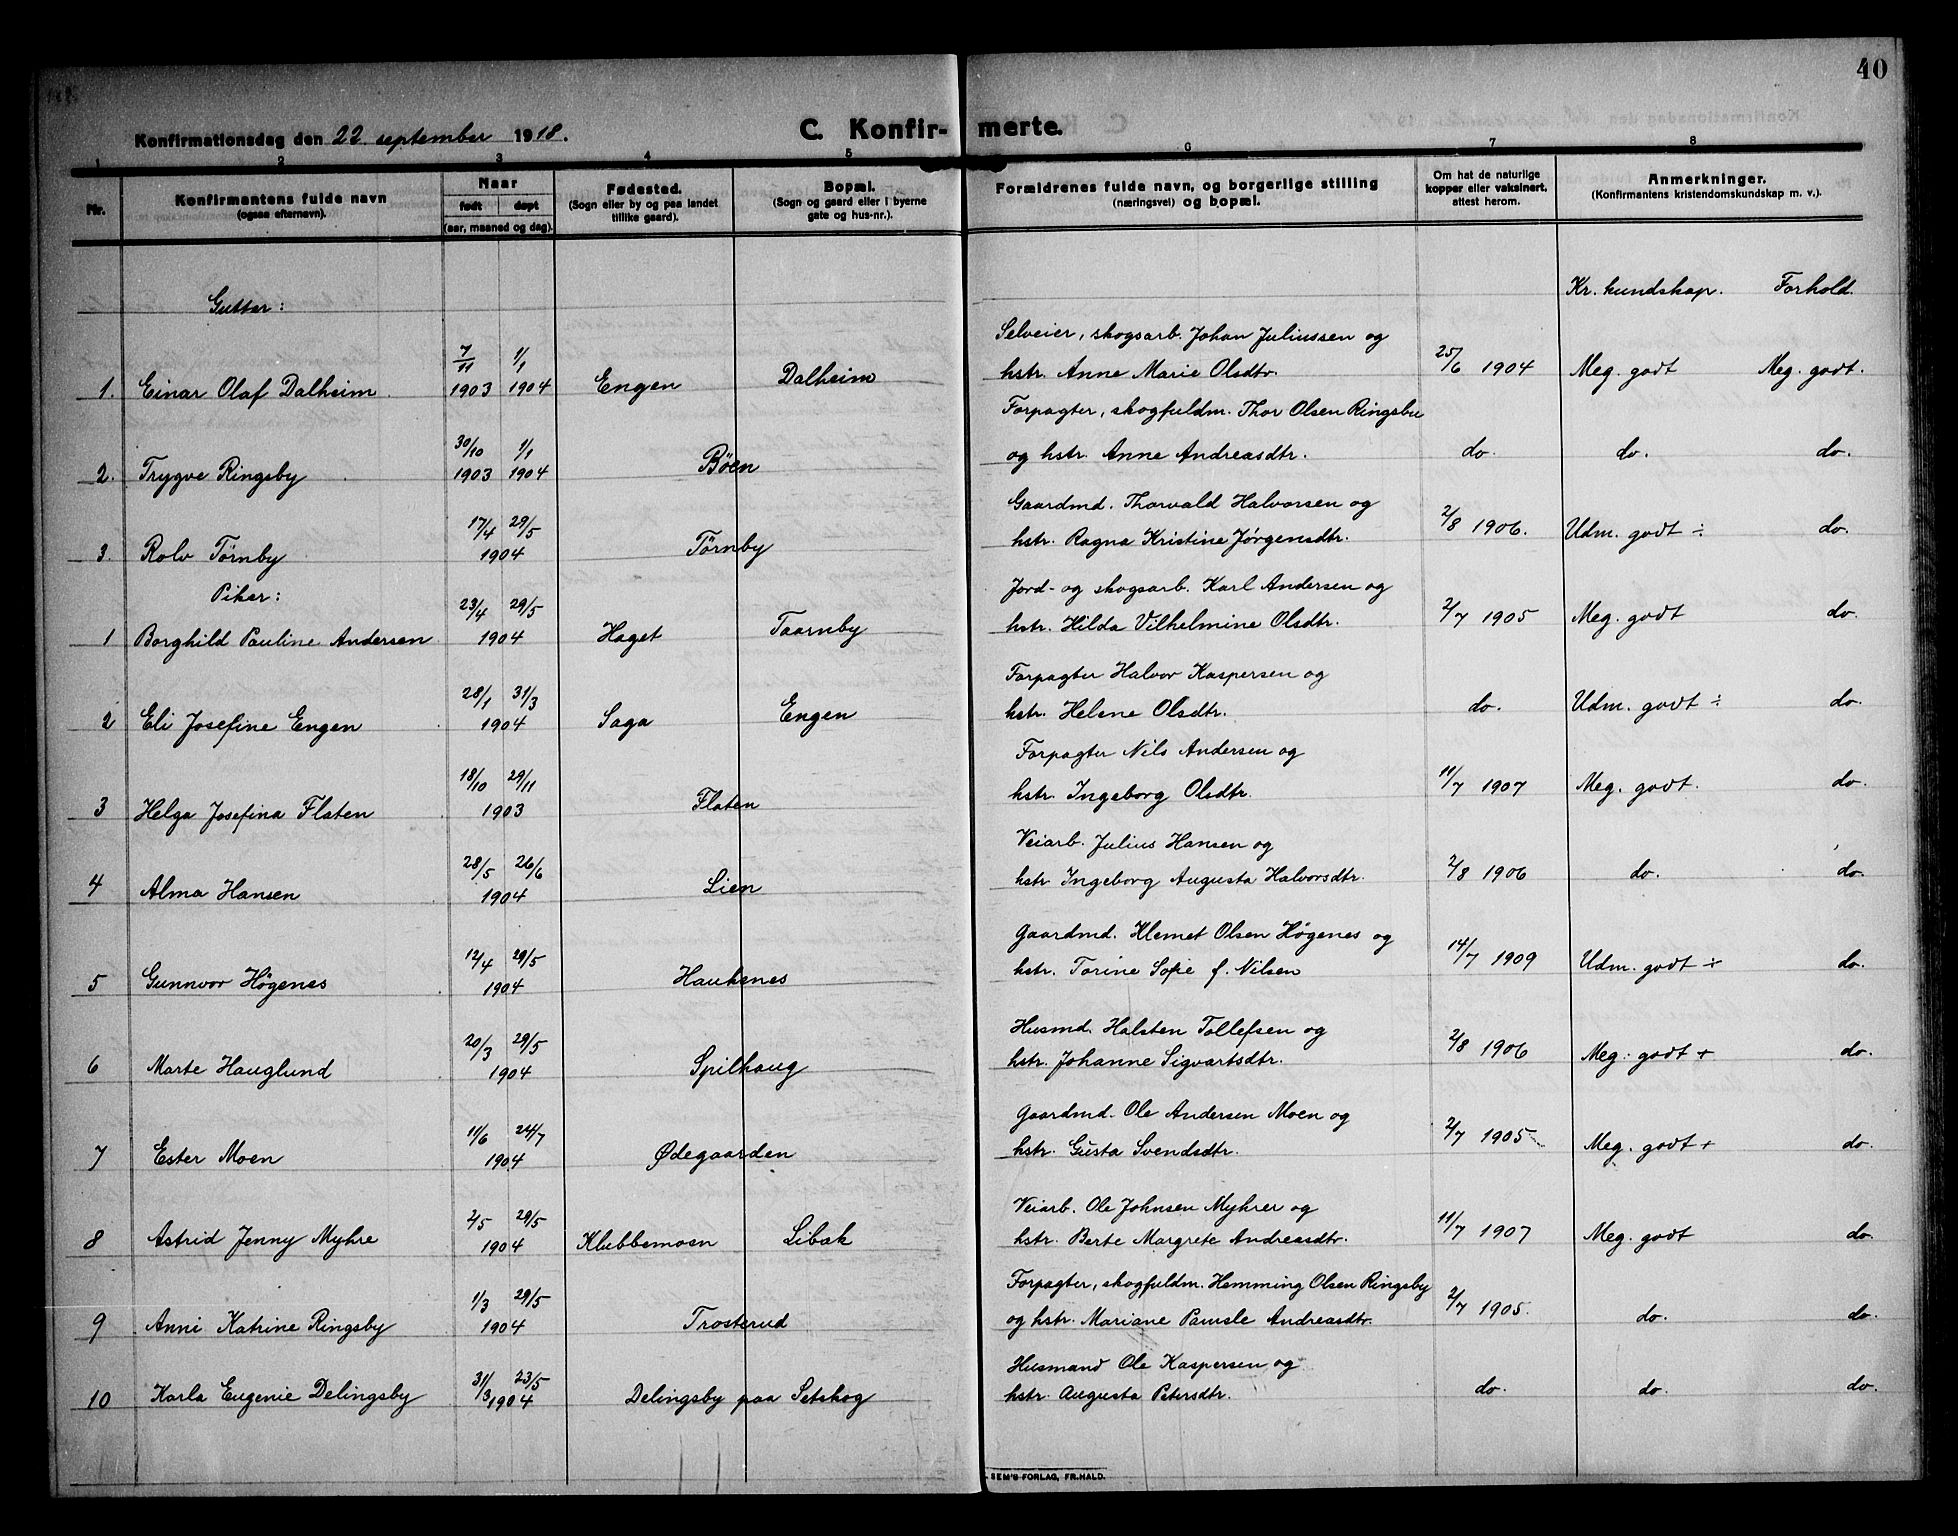 40
Konfirmationsdag den 22 september 1918.
C. Konfirmerte.
1 2 3 4 5 6 7 8
Nr.
Konfirmantens fulde navn
(ogsaa efternavn).
Naar
født døpt
(aar, maaned og dag).
Fødested.
(Sogn eller by og paa landet
tillike gaard).
Bopæl.
(Sogn og gaard eller i byerne
gate og hus-nr.).
Forældrenes fulde navn, og borgerlige stilling
(næringsvei) og bopæl.
Om hat de naturlige
kopper eller vaksinert,
attest herom.
Anmerkninger.
(Konfirmantens kristendomskundskap m. v.).
Gutter:
Kr. kundskap. Forhold.
7/11 1/1 Selveier, skogsarb. Johan Juliussen og
1. Einar Olaf Dalheim 1903 1904 Engen Dalheim hstr. Anne Marie Olsdtr. 25/6 1904 Meg. godt Meg. godt.
30/10 1/1 Forpagter, skogfuldm. Thor Olsen Ringsby
2. Trygve Ringsby 1903 1904 Bøen og hstr. Anne Andreasdtr. do. do. do.
17/4 29/5 Gaardmd. Thorvald Halvorsen og
3. Rolv Tørnby 1904 Tørnby hstr. Ragna Kristine Jørgensdtr. 2/8 1906. Udm. godt ÷ do.
Piker:
23/4 29/5 Jord- og skogsarb. Karl Andersen og
1 Borghild Pauline Andersen 1904 Haget Taarnby hstr. Hilda Vilhelmine Olsdtr. 2/7 1905 Meg. godt do.
28/1 31/3 Forpagter Halvor Kaspersen og
2 Eli Josefine Engen 1904 Saga Engen hstr. Helene Olsdtr. do. Udm. godt ÷ do.
18/10 29/11 Forpagter Nils Andersen og
3 Helga Josefina Flaten 1903 Flaten hstr. Ingeborg Olsdtr. 11/7 1907 Meg. godt. do.
28/5 26/6 Veiarb. Julius Hansen og
4 Alma Hansen 1904 Lien hstr. Ingeborg Augusta Halvorsdtr. 2/8 1906 do. do.
12/4 29/5 Gaardmd. Klemet Olsen Høgenes og
5 Gunnvor Høgenes 1904 Hauksnes hstr. Torine Sofie f. Nilsen 14/7 1909 Udm. godt ÷ do.
20/3 29/5 Husmd. Halsten Tollefsen og
6 Marte Hauglund 1904 Spilhaug hstr. Johanne Sigvartsdtr. 2/8 1906 Meg. godt + do.
11/6 24/7 Gaardmd. Ole Andersen Moen og
7 Ester Moen 1904 Ødegaarden hstr. Gusta Svendsdtr. 2/7 1905 Meg. godt + do.
2/5 29/5 Veiarb. Ole Johnsen Myhrer og
8 Astrid Jenny Myhre 1904 Klubbemoen Libak hstr. Berte Margrete Andreasdtr. 11/7 1907 Meg. godt do.
1/3 29/5 Forpagter, skogfuldm. Hemming Olsen Ringsby
9 Anni Katrine Ringsby 1904 Trosterud og hstr. Mariane Andreasdtr. 2/7 1905. do. do.
31/3 23/5 Husmand Ole Kaspersen og
10 Karla Eugenie Delingsby 1904 Delingsby paa Setskog hstr. Augusta Petersdtr. do. do. do.
SEM'S FORLAG, FR.HALD.